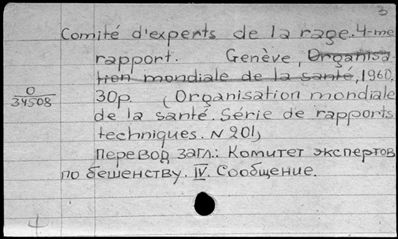 3
Comité d'experts de la rage. 4-me
rapport. Genève, Organisa
tion mondiale de la santé, 1960.
О
34508
30p. (Organisation mondiale
de la santé. Série de rapports
techniques. N 201)
Перевод загл.: Комитет экспертов
по бешенству. IV. Сообщение.